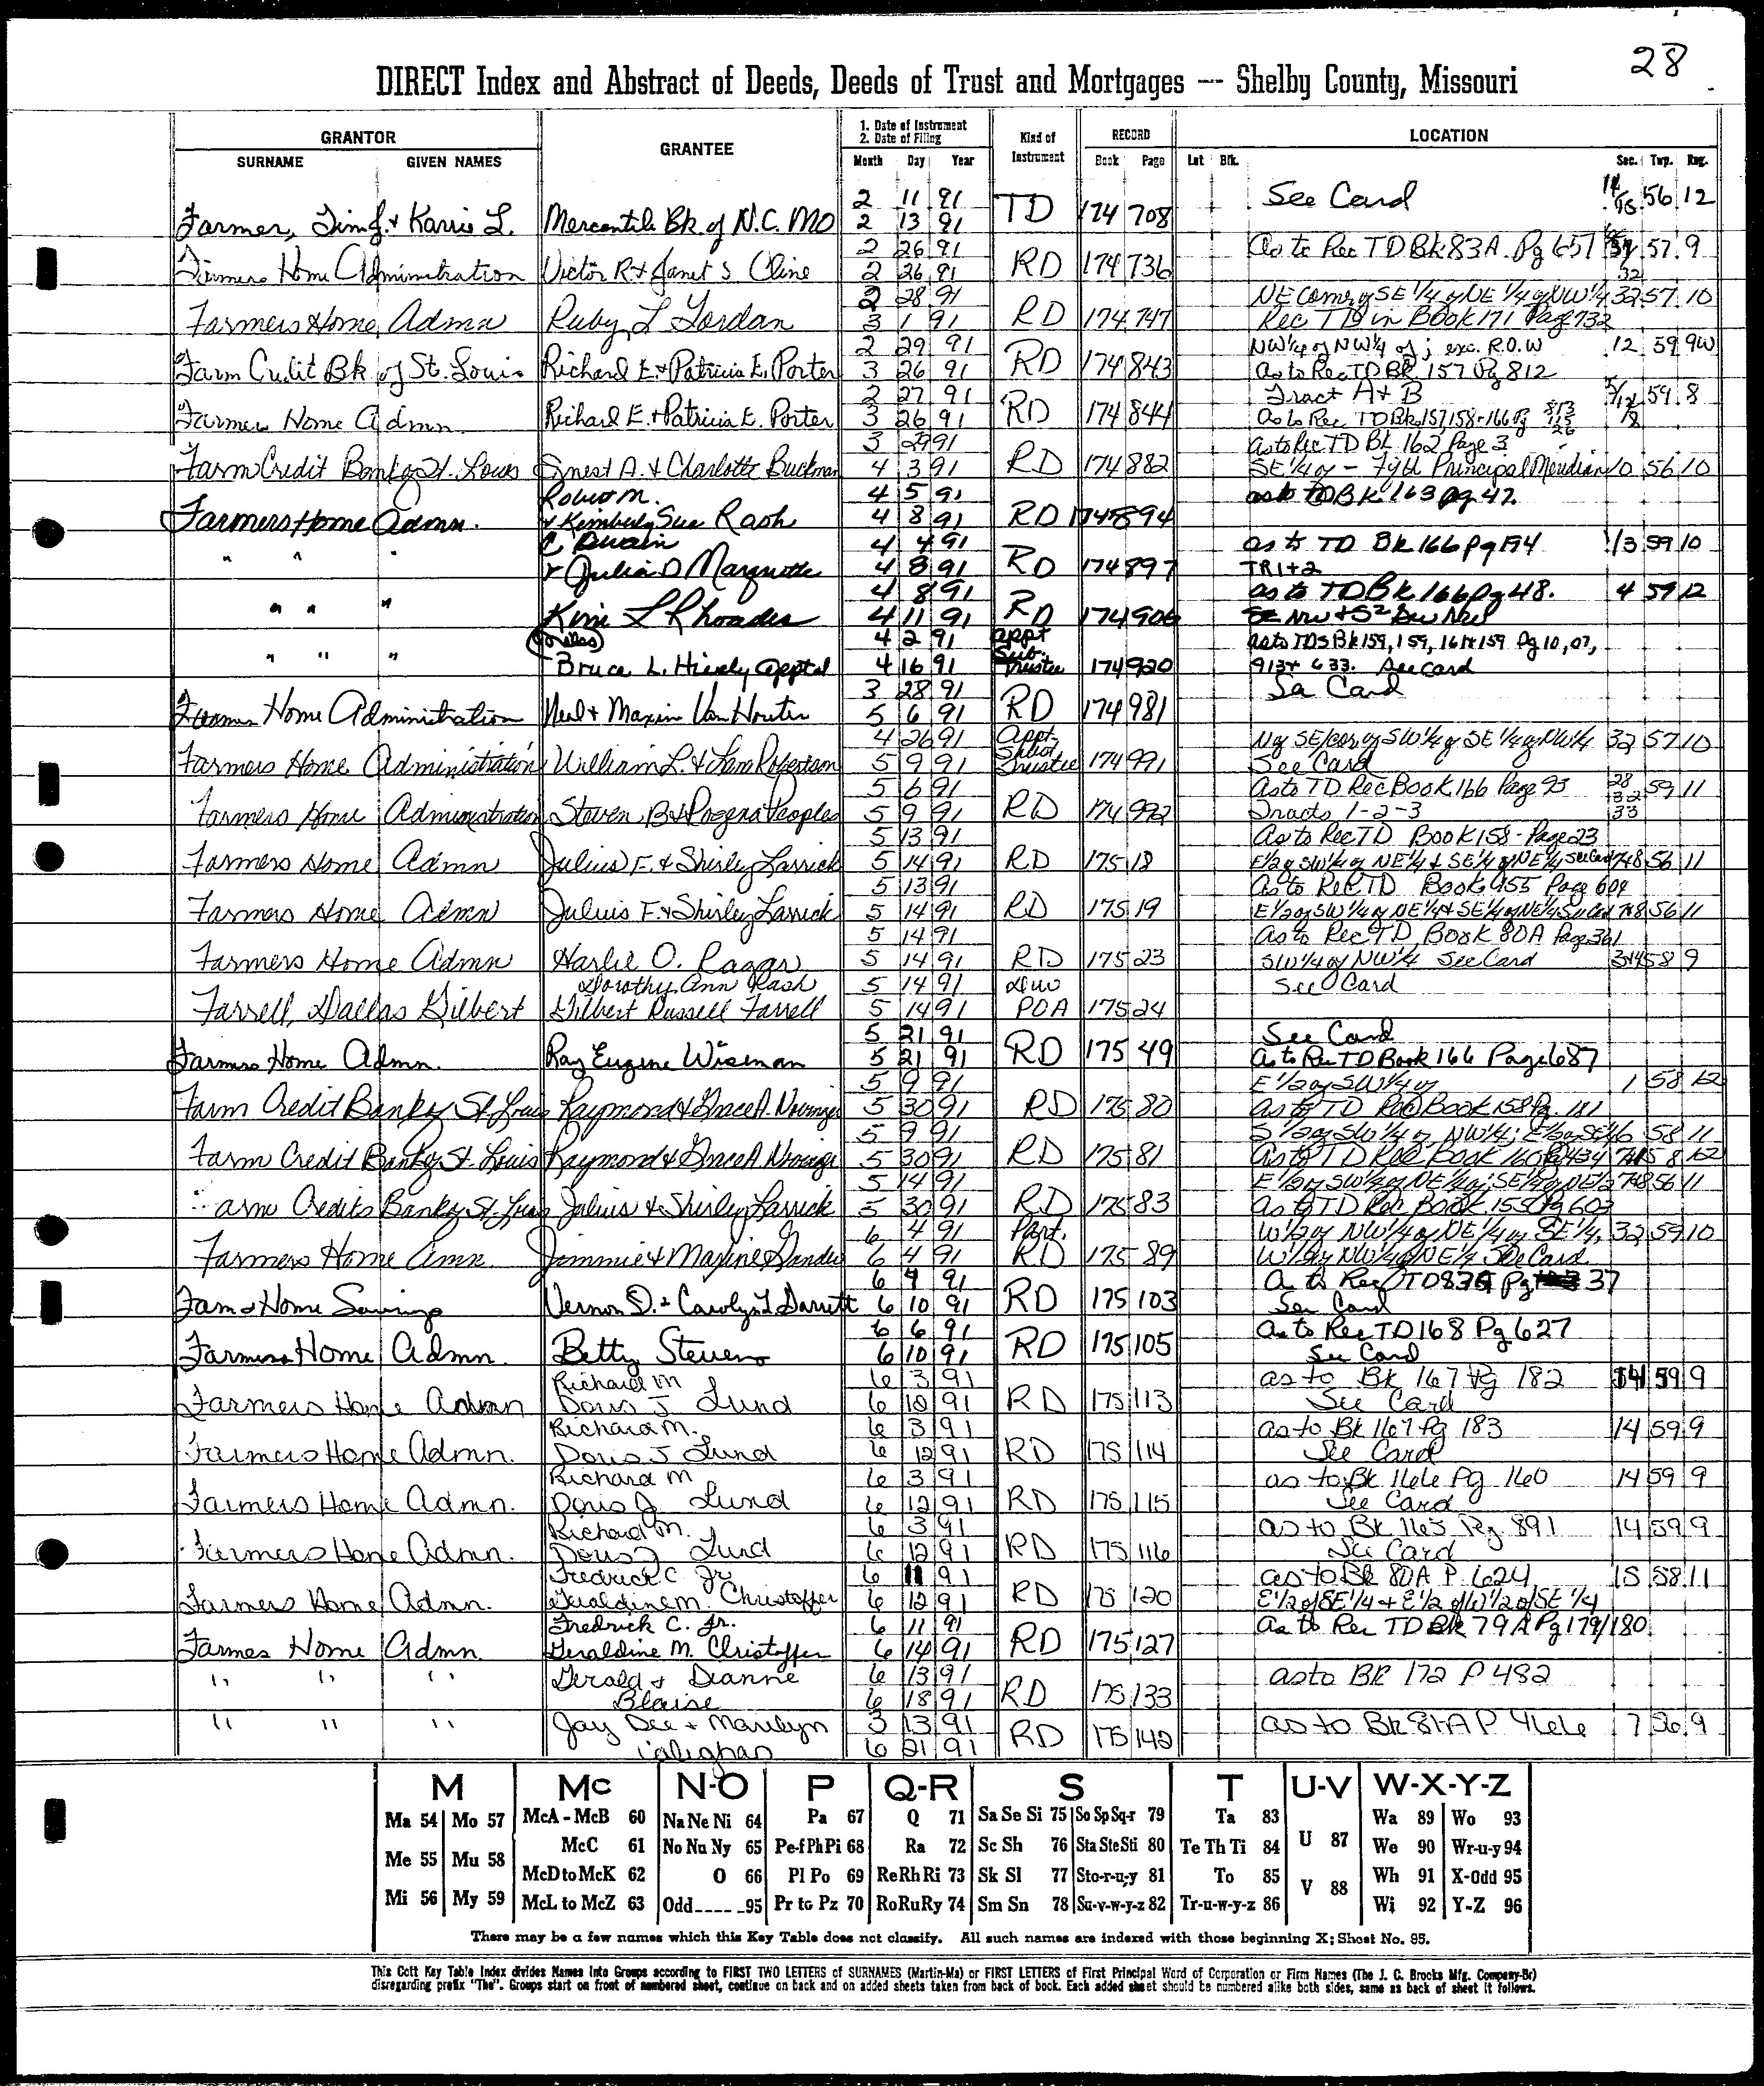 28
DIRECT Index and Abstract of Deeds, Deeds of Trust and Mortgages — Shelby County, Missouri
GRANTOR GRANTEE 1. Date of Instrument 2. Date of Filing Kind of Instrument RECORD LOCATION
SURNAME GIVEN NAMES Month Day Year Book Page Lot Blk. Sec. Twp. Rng.
2 11 91 See Card 56 12
Farmer, Tim J. & Karrie L. Mercantile Bk of N.C. MO 2 13 91 TD 174 708
2 26 91 As to Rec TD Bk 83A Pg 651 57 9
Farmers Home Administration Victor R & Janet S Cline 2 26 91 RD 174 736 32
2 28 91 NE Corner of SE 1/4 of NE 1/4 of NW 1/4 32 57 10
Farmers Home Admn Ruby L Jordan 3 1 91 RD 174 747 Rec TD in Book 171 Page 732
2 29 91 NW 1/4 of NW 1/4 of ; exc. R.O.W 12 59 9W
Farm Credit Bk of St. Louis Richard E. & Patricia E. Porter 3 26 91 RD 174 843 As to Rec TD Bk 157 Pg 812
2 27 91 Tract A + B 59 8
Farmers Home Admn. Richard E. & Patricia E. Porter 3 26 91 RD 174 844 As to Rec TD Bk 157, 158 + 166 Pg
3 29 91 As to Rec TD Bk 162 Page 3
Farm Credit Bank of St. Louis Ernest A. & Charlotte Buckman 4 3 91 RD 174 882 SE 1/4 of - Fifth Principal Meridian 10 56 10
Robert M. 4 5 91 as to TD Bk 163 Pg 42.
Farmers Home Admn. & Kimberly Sue Rash 4 8 91 RD 174 894
C Dwain 4 4 91 as to TD Bk 166 Pg 194 1/3 59 10
" " " & Julia D Marquette 4 8 91 RD 174 897 TR 1 + 2
4 8 91 as to TD Bk 166 Pg 48. 4 59 12
" " " Kim L Rhoades 4 11 91 RD 174 906
4 2 91 Appt as to TDS Bk 159, 159, 161 & 159 Pg 10, 07,
" " " Bruce L. Hively apptd 4 16 91 Sub. Trustee 174 920 913 + 633. See card
3 28 91 See Card
Farmers Home Administration Neal & Maxine Van Houten 5 6 91 RD 174 981
4 26 91 Appt. N of SE/cor of SW 1/4 of SE 1/4 of NW 1/4 32 57 10
Farmers Home Administration William L. & Pam Robertson 5 9 91 Subst Trustee 174 991 See Card
5 6 91 As to TD Rec Book 166 Page 93 28 59 11
Farmers Home Administration Steven B & Rogena Peoples 5 9 91 RD 174 992 Tracts 1-2-3 32 33
5 13 91 As to Rec TD Book 158 - Page 23
Farmers Home Admn Julius F. & Shirley Larrick 5 14 91 RD 175 18 E 1/2 of SW 1/4 of NE 1/4 & SE 1/4 of NE 1/4 See Card 7+8 56 11
5 13 91 As to Rec TD Book 155 Page 604
Farmers Home Admn Juluis F. & Shirley Larrick 5 14 91 RD 175 19 E 1/2 of SW 1/4 of NE 1/4 + SE 1/4 of NE 1/4 See Card 7+8 56 11
5 14 91 As to Rec TD Book 80A Page 361
Farmers Home Admn Harlie O. Ragar 5 14 91 RD 175 23 SW 1/4 of NW 1/4 See Card 3+4 58 9
Dorothy Ann Rash 5 14 91 Duo See Card
Farrell, Dallas Gilbert Gilbert Russell Farrell 5 14 91 POA 175 24
5 21 91 See Card
Farmers Home Admn. Ray Eugene Wiseman 5 21 91 RD 175 49 As to Rec TD Book 166 Page 687
5 9 91 E 1/2 of SW 1/4 of 1 58 12
Farm Credit Bank of St. Louis Raymond & Grace A. Novinger 5 30 91 RD 175 80 As to TD Rec Book 158 Pg. 181
5 9 91 S 1/2 of SW 1/4 of NW 1/4; E 1/2 of SE 1/4 6 58 11
Farm Credit Bank of St. Louis Raymond & Grace A Novinger 5 30 91 RD 175 81 As to TD Rec Book 160 Pg 434
5 14 91 E 1/2 of SW 1/4 of NE 1/4 of; SE 1/4 of NE 1/4 7+8 56 11
arm Credits Bank of St. Louis Julius & Shirley Larrick 5 30 91 RD 175 83 As to TD Rec Book 155 Pg 603
6 4 91 Part. W 1/2 of NW 1/4 of NE 1/4 of SE 1/4, 32 59 10
Farmers Home Amn. Jimmie & Maxine Sander 6 4 91 RD 175 89 W 1/2 of NW 1/4 of NE 1/4 See Card
6 7 91 As to Rec TD 83A Pg 37
Farm & Home Savings Vernon D. & Carolyn L Darrett 6 10 91 RD 175 103 See Card
6 6 91 As to Rec TD 168 Pg 627
Farmers Home Admn. Betty Stevens 6 10 91 RD 175 105 See Card
Richard M 6 3 91 as to Bk 167 Pg 182 14 59 9
Farmers Home Admn Doris J Lund 6 12 91 RD 175 113 See Card
Richard M. 6 3 91 as to Bk 167 Pg 183 14 59 9
Farmers Home Admn. Doris J Lund 6 12 91 RD 175 114 See Card
Richard M 6 3 91 as to Bk 166 Pg 160 14 59 9
Farmers Home Admn. Doris J Lund 6 12 91 RD 175 115 See Card
Richard M. 6 3 91 as to Bk 165 Pg 891 14 59 9
Farmers Home Admn. Doris J Lund 6 12 91 RD 175 116 See Card
Fredrick C Jr 6 11 91 as to Bk 80A P. 624 15 58 11
Farmers Home Admn. Geraldine M. Christoffer 6 12 91 RD 175 120 E 1/2 of SE 1/4 + E 1/2 of W 1/2 of SE 1/4
Fredrick C. Jr. 6 11 91 As to Rec TD Bk 79A Pg 179/180
Farmes Home Admn. Geraldine M. Christoffer 6 14 91 RD 175 127
" " " Gerald & Deanne 6 13 91 as to BK 172 P 482
Blaise 6 18 91 RD 175 133
" " " Jay Dee & Marilyn 3 13 91 as to Bk 81-A P. 466 7 56 9
6 21 91 RD 175 142
M Mc N-O P Q-R S T U-V W-X-Y-Z
Ma 54 Mo 57 McA - McB 60 Na Ne Ni 64 Pa 67 Q 71 Sa Se Si 75 So Sp Sq-r 79 Ta 83 Wa 89 Wo 93
McC 61 No Nu Ny 65 Pe-f Ph Pi 68 Ra 72 Sc Sh 76 Sta Ste Sti 80 Te Th Ti 84 U 87 We 90 Wr-u-y 94
Me 55 Mu 58 McD to McK 62 O 66 Pl Po 69 Re Rh Ri 73 Sk Sl 77 Sto-r-u-y 81 To 85 V 88 Wh 91 X-Odd 95
Mi 56 My 59 McL to McZ 63 Odd____95 Pr to Pz 70 Ro Ru Ry 74 Sm Sn 78 Su-v-w-y-z 82 Tr-u-w-y-z 86 Wi 92 Y-Z 96
There may be a few names which this Key Table does not classify. All such names are indexed with those beginning X; Sheet No. 95.
This Cott Key Table Index divides Names Into Groups according to FIRST TWO LETTERS of SURNAMES (Martin-Ma) or FIRST LETTERS of First Principal Word of Corporation or Firm Names (The J. C. Brocks Mfg. Company-Br)
disregarding prefix "The". Groups start on front of numbered sheet, continue on back and on added sheets taken from back of book. Each added sheet should be numbered alike both sides, same as back of sheet it follows.